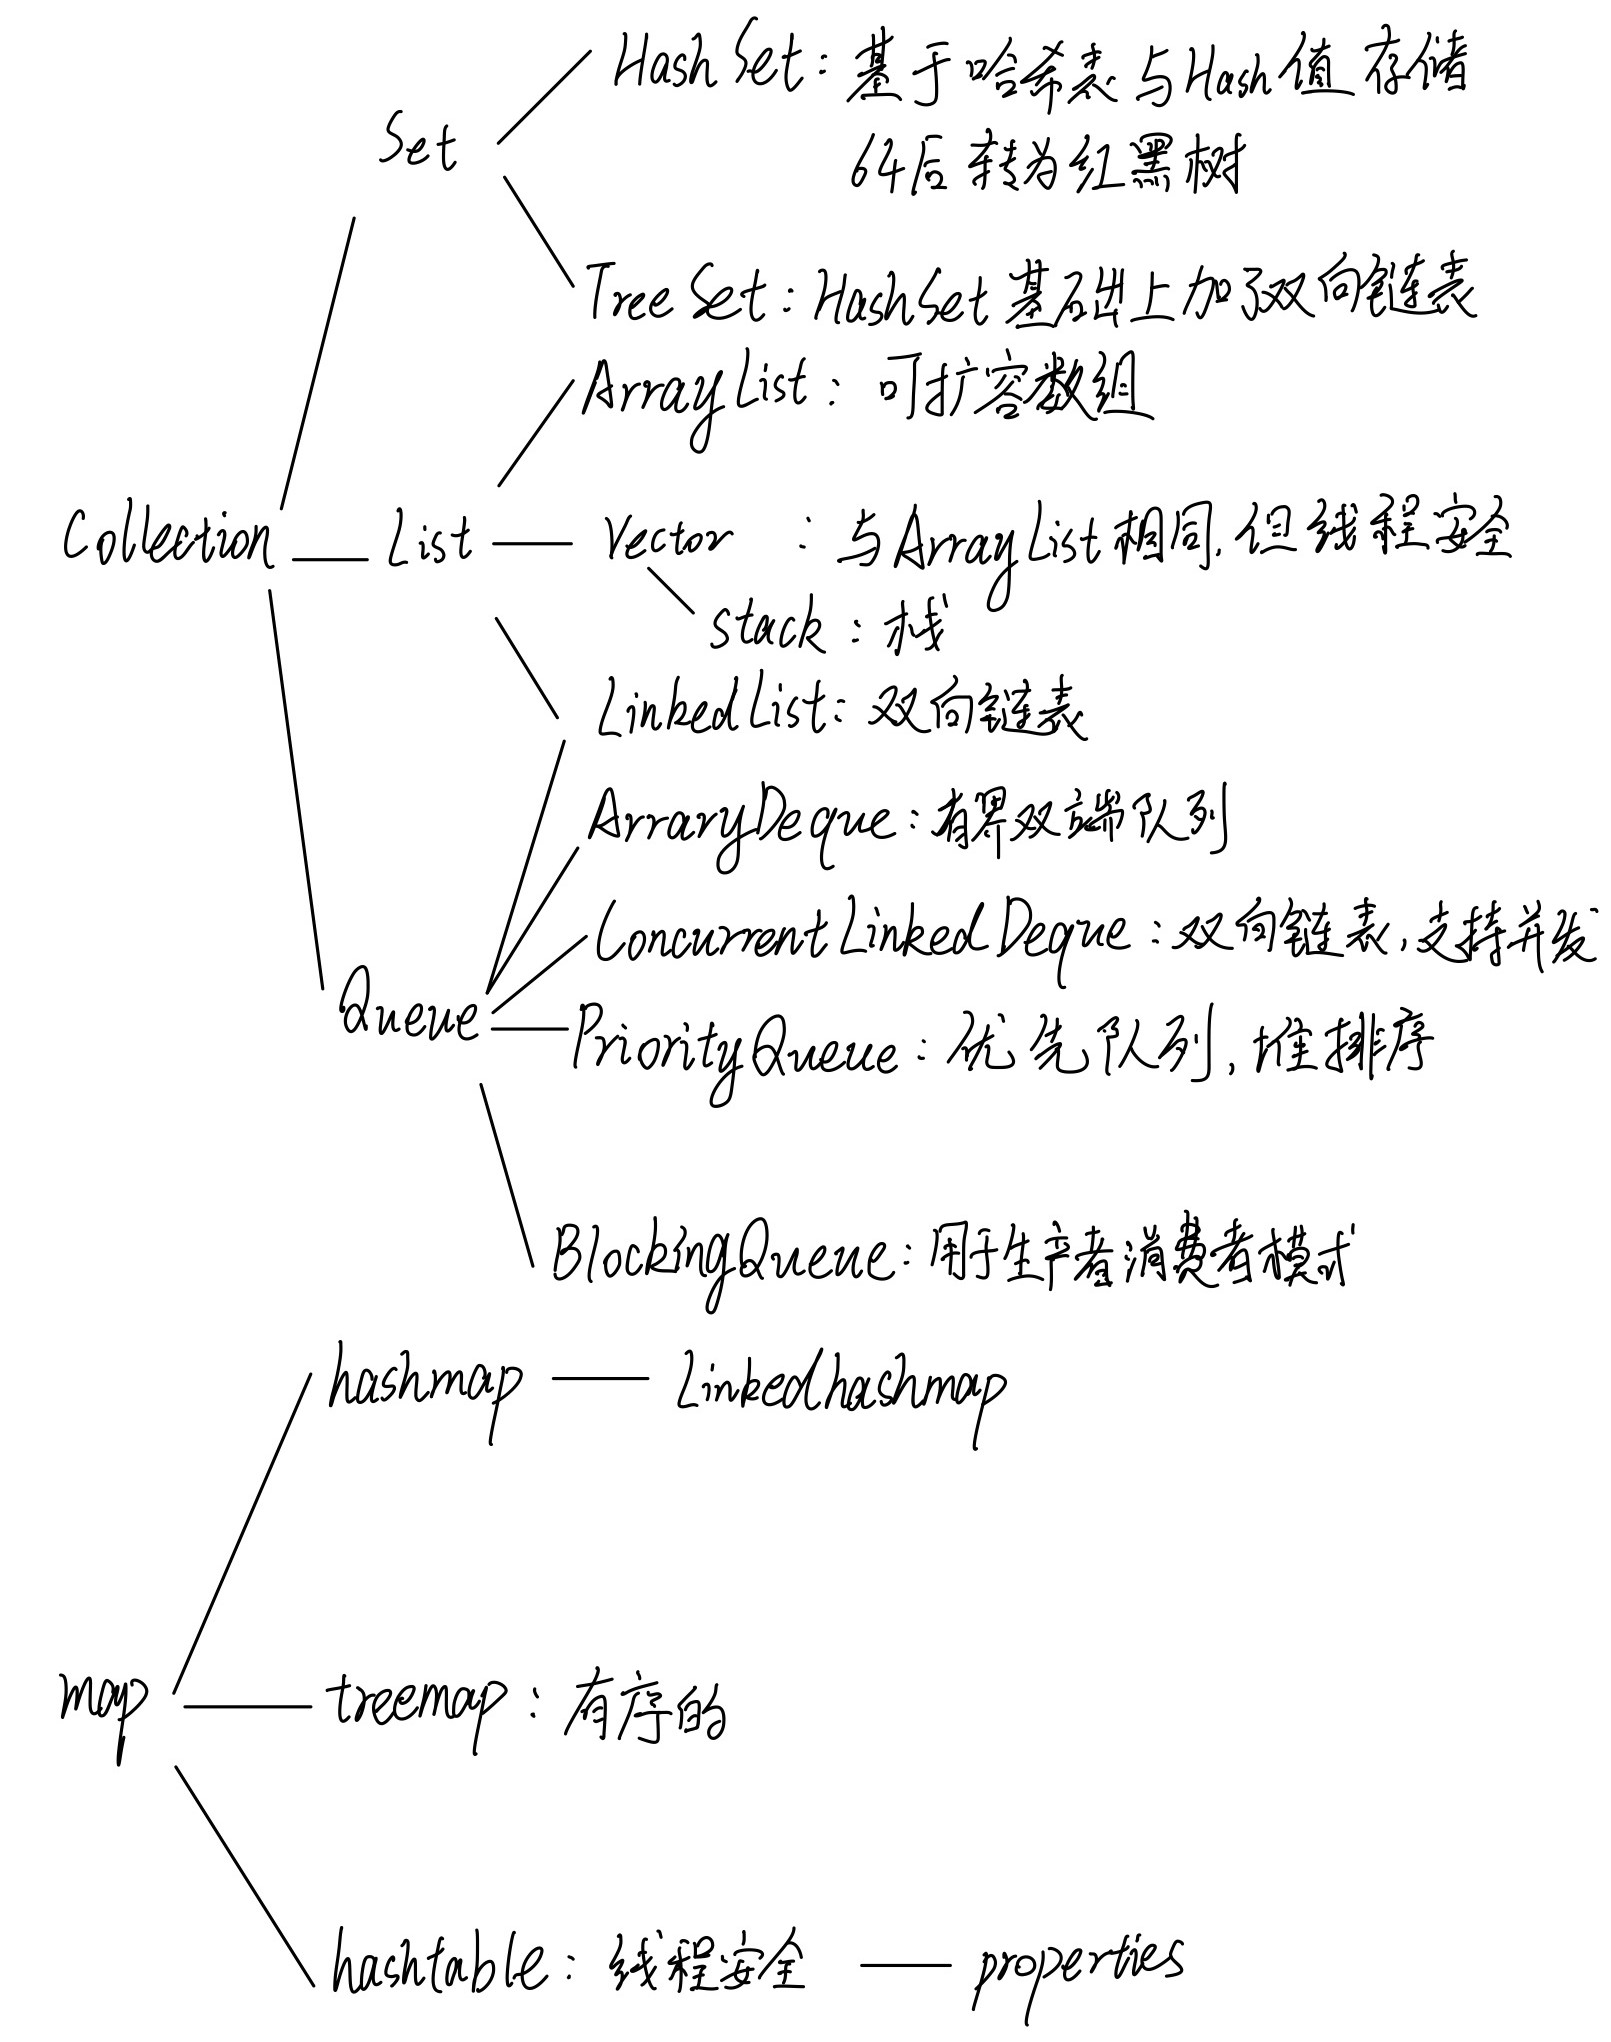 HashSet：基于哈希表与Hash值存储
Set
64后转为红黑树
TreeSet：HashSet基础上加了双向链表
ArrayList：可扩容数组
Collection — List — Vector ：与ArrayList相同，但线程安全
stack：栈
LinkedList：双向链表
ArraryDeque：有界双端队列
ConcurrentLinkedDeque：双向链表，支持并发
Queue — PriorityQueue：优先队列，堆排序
BlockingQueue：用于生产者消费者模式
hashmap — Linkedhashmap
map — treemap：有序的
hashtable：线程安全 — properties